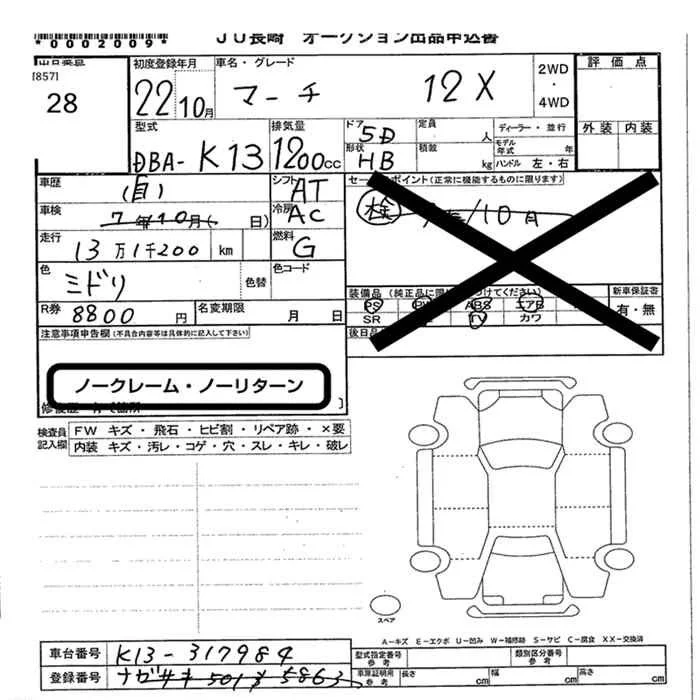 *0002009*
JU長崎 オークション出品申込書
出品番号 初度登録年月 車名・グレード 2WD・4WD 評価点
[857]
28 22 10月 マーチ 12X
外装 内装
型式 排気量 ドア 5D 定員 人 ディーラー・並行
DBA-K13 1200cc 形状 HB 積載 kg モデル年式 年
ハンドル 左・右
車歴 (自) シフト AT セールスポイント(正常に機能するものに限ります)
車検 7年10月( 日) 冷房 AC 検 /10日
走行 13万1千200 km 燃料 G
色 ミドリ 色替 色コード
装備品 (純正品に限 つけてください) 新車保証書
PS PW ABS エアB 有・無
SR TV カワ
R券 8800円 名変期限 月 日
後日品
注意事項申告欄(不具合内容等は具体的に記入して下さい)
ノークレーム・ノーリターン
検査員記入欄 FW キズ・飛石・ヒビ割・リペア跡・×要
内装 キズ・汚レ・コゲ・穴・スレ・キレ・破レ
スペア
A−キズ E−エクボ U−凹み W−補修跡 S−サビ C−腐食 XX−交換済
車台番号 K13-317984 型式指定番号 参考 類別区分番号 参考
登録番号 ナガサキ 501 す 5863 車庫証明用 参考 長さ cm 幅 cm 高さ cm